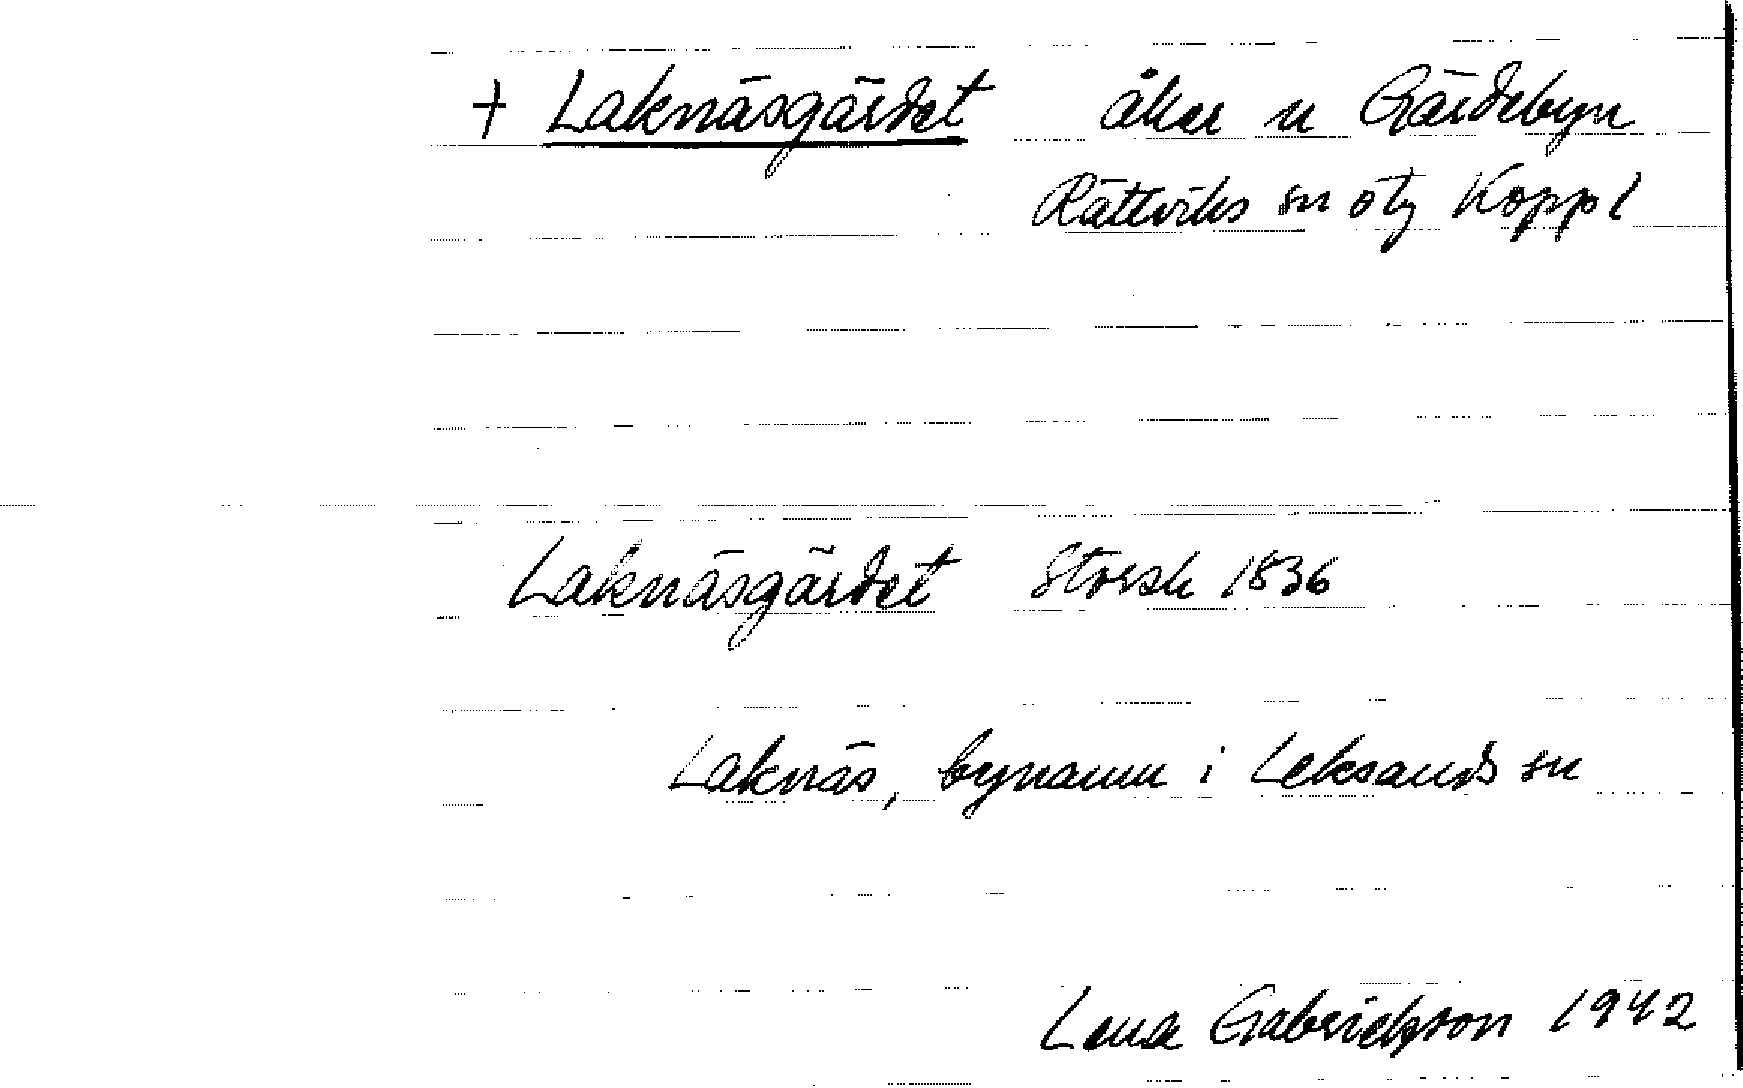 + Laknäsgärdet åker n Gärdebyn
Rättviks sn otg Koppl
Laknäsgärdet Storsk 1836
Laknäs, bynamn i Leksands sn
Lena Gabrielsson 1942